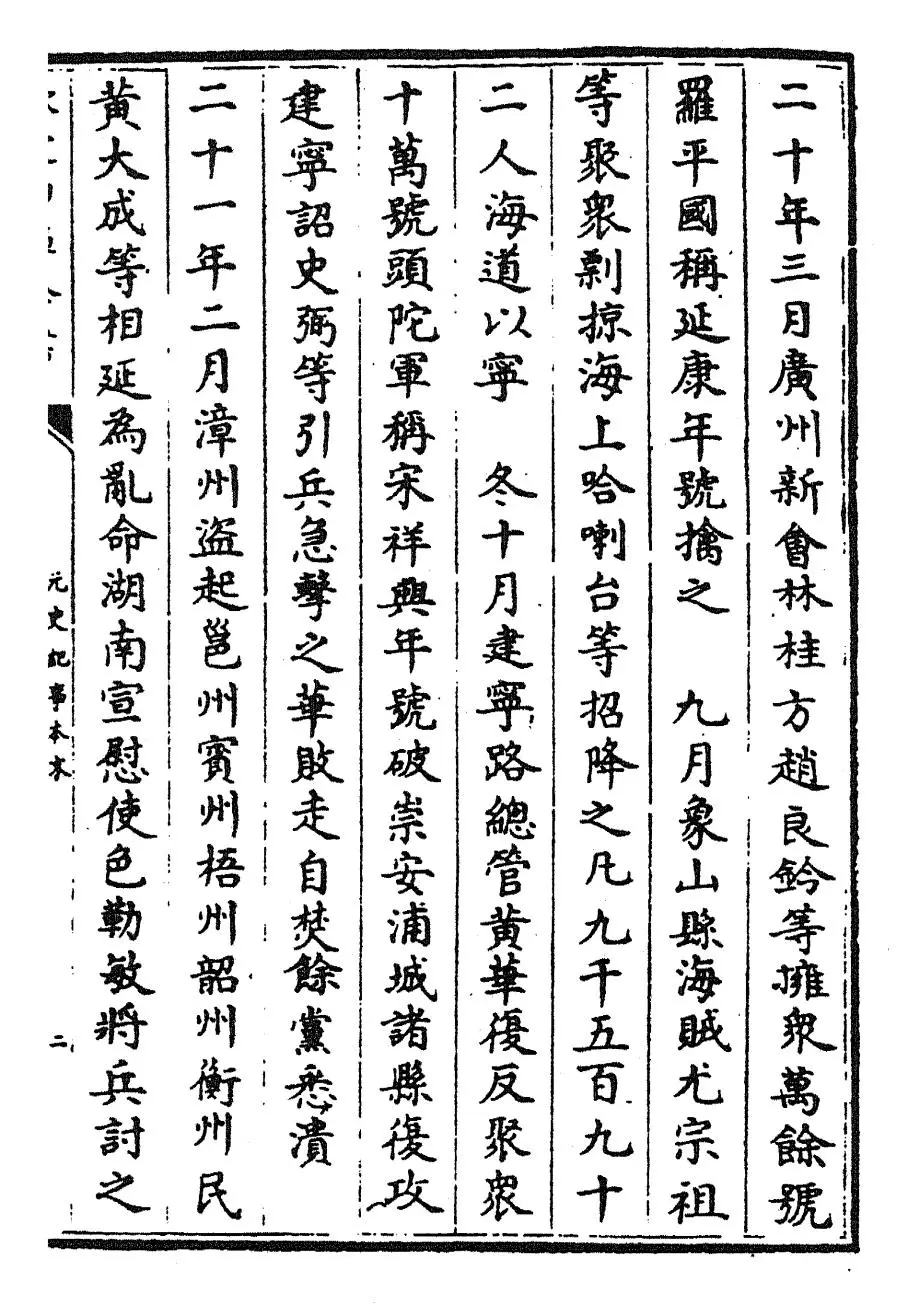 二十年三月廣州新會林桂方趙良鈐等擁衆萬餘號
羅平國稱延康年號擒之　九月象山縣海賊尤宗祖
等聚衆剽掠海上哈喇台等招降之凡九千五百九十
二人海道以寧　冬十月建寧路總管黄華復反聚衆
十萬號頭陀軍稱宋祥興年號破崇安浦城諸縣復攻
建寧詔史弼等引兵急擊之華敗走自焚餘黨悉潰
二十一年二月漳州盜起邕州賓州梧州韶州衡州民
黄大成等相延為亂命湖南宣慰使色勒敏將兵討之
元史紀事本末
二